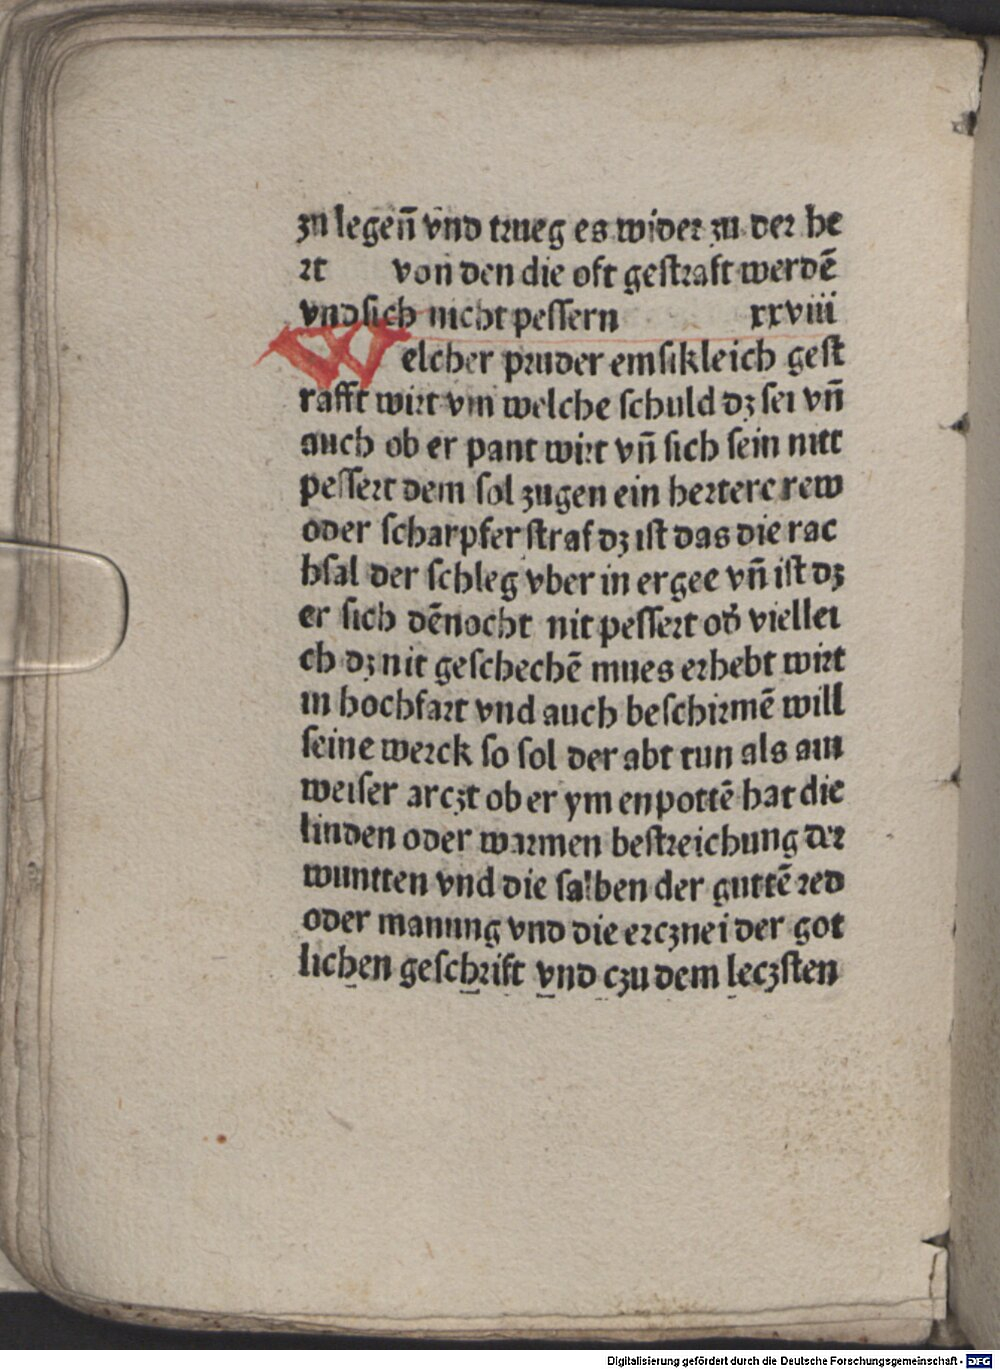 zu legen̄ vnd trueg es wider zu der he
rt von den die oft geſtraft werdē
vndſich nicht peſſern xxviii
Welcher pruder emſikleich geſt
rafft wirt vm welche ſchuld dꝫ ſei vn̄
auch ob er pant wirt vn̄ ſich ſein nitt
peſſert dem ſol zugen ein herterc rew
oder ſcharpfer ſtraf dꝫ iſt das die rac
hſal der ſchleg vber in ergee vn̄ iſt dꝫ
er ſich dēnocht nit peſſert od̛ viellei
ch dꝫ nit geſchechē mues erhebt wirt
in hochfart vnd auch beſchirmē will
ſeine werck ſo ſol der abt tun als ain
weiſer arczt ob er ym enpottē hat die
linden oder warmen beſtreichung der
wuntten vnd die ſalben der guttē red
oder manung vnd die ercznei der got
lichen geſchrift vnd czu dem leczſten
Digitalisierung gefördert durch die Deutsche Forschungsgemeinschaft - DFG